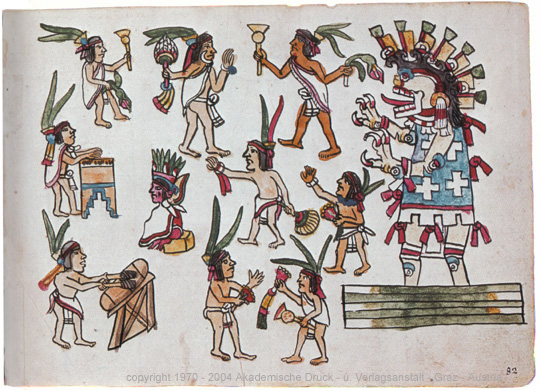 82
copyright 1970 - 2004 Akademische Druck - u. Verlagsanstalt - Graz - Austria